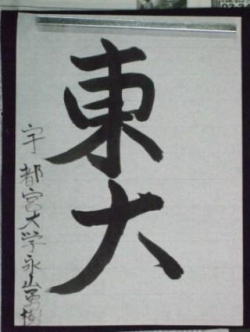 東大
宇都宮大学永山